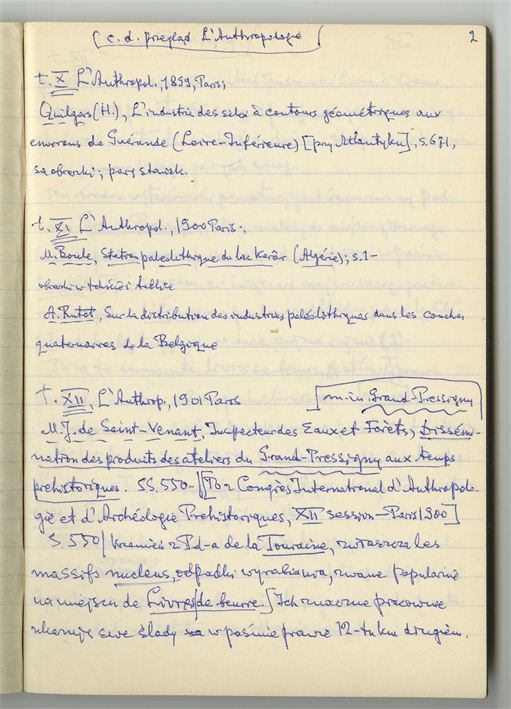 (c.d. przegląd L'Anthropologie) 2
t. X L'Anthropol., 1899, Paris,
Quilgars (H.), L'industrie des silex à contours géométriques aux
environs de Guérande (Loire-Inférieure) [przy Atlantyku], s. 671,
są obrazki; parę stanisk.
t. XI L'Anthropol., 1900 Paris.,
M. Boule, Station paléolithique du lac Karâr (Algérie); s. 1-
obrazki w tekście i tablice
A. Rutot, Sur la distribution des industries paléolithiques dans les couches
quaternaires de la Belgique
T. XII, L'Anthrop., 1901 Paris [m. in Grand-Pressigny
M. J. de Saint-Venant, Inspecteur des Eaux et Forêts, Dissémi-
nation des produits des ateliers du Grand-Pressigny aux temps
préhistoriques. SS. 550- [To z Congrès International d'Anthropolo-
gie et d'Archéologie Préhistoriques, XII session - Paris 1900]
S. 550/ krzemień z Pd-a de la Touraine, zwłaszcza les
massifs nucleus, odpadki wyrabiania, zwane popularnie
na miejscu de Livres de beurre.] Ich znaczne pracownie
ukazują swe ślady w paśmie prawie 12-tu km długiem.